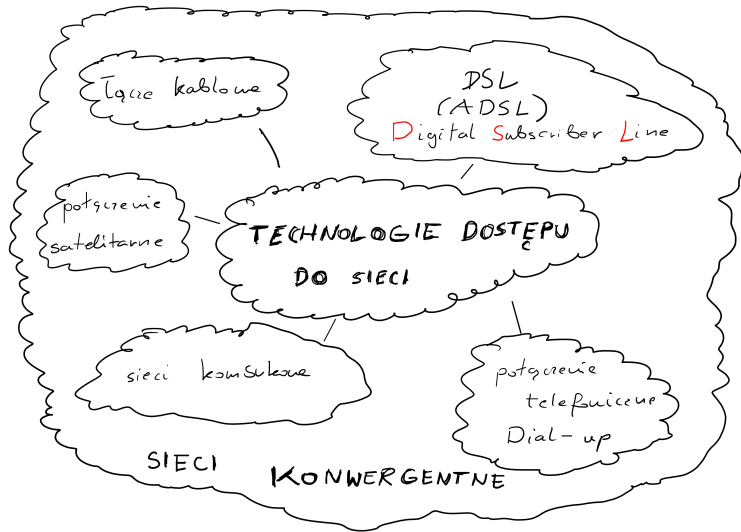 Łącze kablowe
DSL
(ADSL)
Digital Subscriber Line
połączenie
satelitarne
TECHNOLOGIE DOSTĘPU
DO SIECI
sieci
połączenie
telefoniczne
Dial-up
SIECI KONWERGENTNE